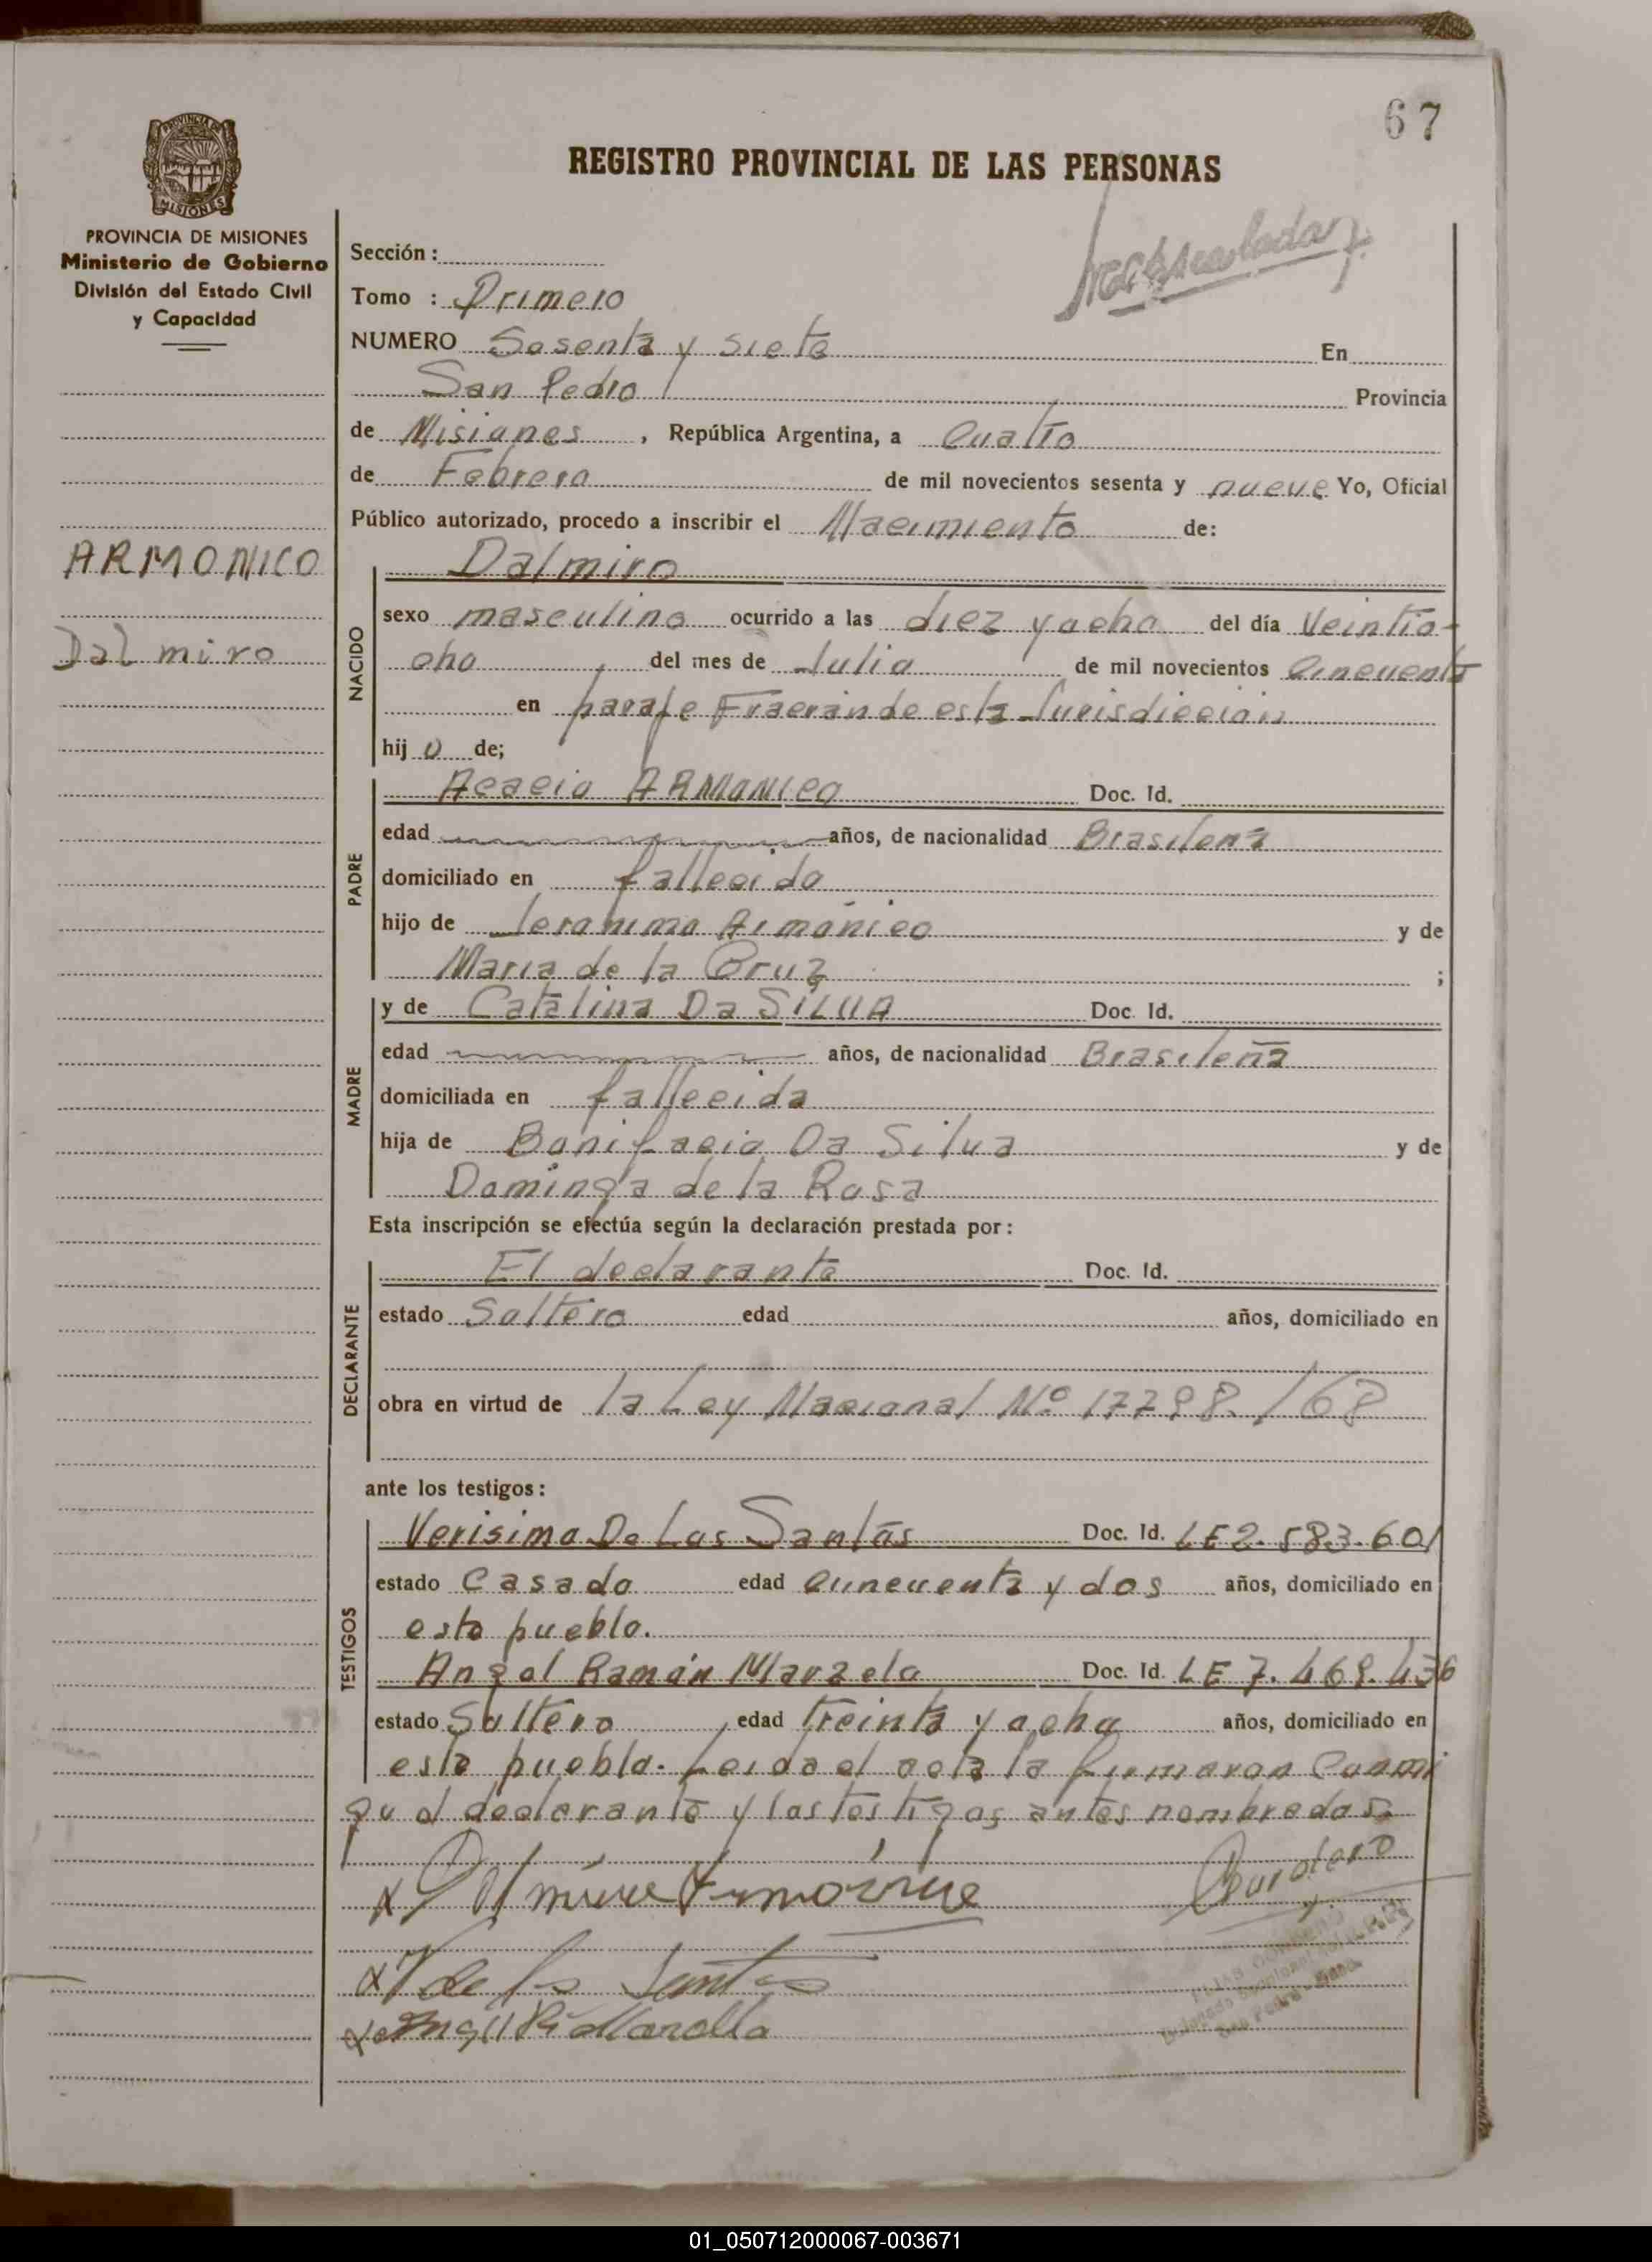 67
REGISTRO PROVINCIAL DE LAS PERSONAS
PROVINCIA DE
MISIONES
PROVINCIA DE MISIONES
Ministerio de Gobierno
División del Estado Civil
y Capacidad
ARMONICO
Dalmiro
Sección :
Tomo : Primero
NUMERO Sesenta y siete En
San Pedro Provincia
de Misiones , República Argentina, a Cuatro
de Febrero de mil novecientos sesenta y nueve Yo, Oficial
Público autorizado, procedo a inscribir el Nacimiento de:
NACIDO
Dalmiro
sexo masculino ocurrido a las diez y ocho del día Veintio-
cho del mes de Julio de mil novecientos Cincuenta
en paraje Fracran de esta Jurisdicción
hij o de;
PADRE
Acacio ARMONICO Doc. Id.
edad años, de nacionalidad Brasileña
domiciliado en fallecido
hijo de Jeronimo Armónico y de
Maria de la Cruz ;
MADRE
y de Catalina Da SILVA Doc. Id.
edad años, de nacionalidad Brasileña
domiciliada en fallecida
hija de Bonifacio Da Silva y de
Dominga de la Rosa
Esta inscripción se efectúa según la declaración prestada por :
DECLARANTE
El declarante Doc. Id.
estado Soltero edad años, domiciliado en
obra en virtud de la Ley Nacional Nº 17798/68
ante los testigos :
TESTIGOS
Verisimo De Los Santos Doc. Id. LE 2.583.601
estado Casado edad cincuenta y dos años, domiciliado en
este pueblo.
Angel Ramón Marzelo Doc. Id. LE 7.469.436
estado Soltero edad treinta y ocho años, domiciliado en
este pueblo. Leida el acta la firmaron Conmi
go el declarante y los testigos antes nombrados.
V de los Santos
01_050712000067-003671